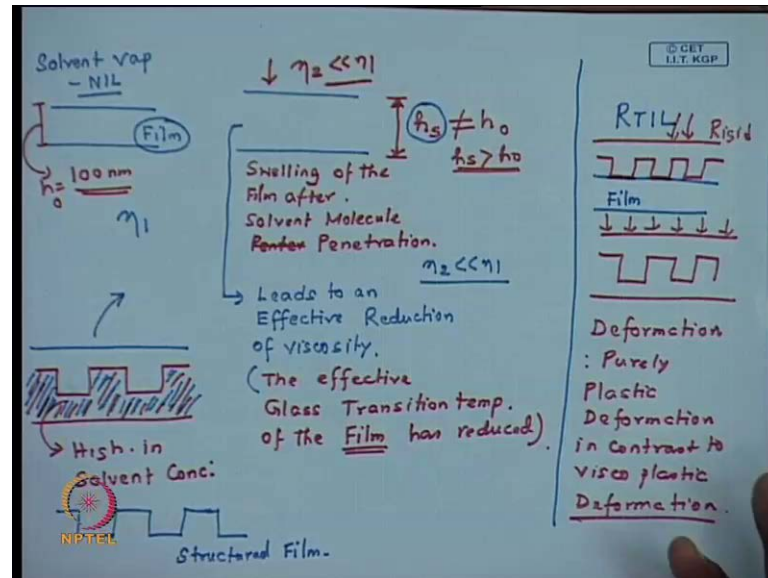 Solvent Vap
- NIL
Film
h0 = 100 nm
η1
High. in
Solvent Conc:
Structured Film.
↓ η2 << η1
hs ≠ h0
hs > h0
Swelling of the
Film after.
Solvent Molecule
Penetration.
η2 << η1
Leads to an
Effective Reduction
of viscosity.
(The effective
Glass Transition temp.
of the Film has reduced).
© CET
I.I.T. KGP
RTIL
Rigid
Film
Deformction
: Purely
Plastic
Deformction
in contrast to
Visco plastic
Deformction.
NPTEL